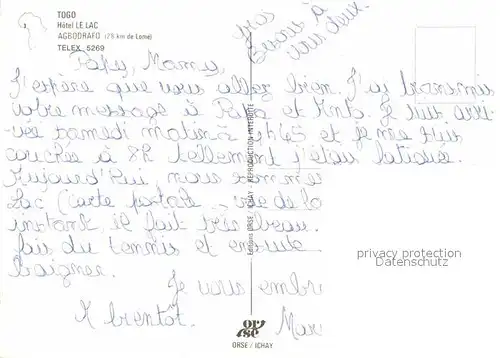 TOGO
Hôtel LE LAC
AGBODRAFO (28 km de Lomé)
TELEX 5269
gros
Bisous à
vous deux.
Papy, Mamy,
J'espère que vous allez bien. J'ai transmis
votre message à Papa et Je suis arri-
vée samedi matin à 1h45 et je me suis
couchée à 8h tellement j'étais fatiguée.
Aujourd'hui nous sommes
Lac (carte postale vue de la
instant il fait très beau.
fais du tennis et ensuite
baigner.
Je vous embr
A bientôt. Mar
Editions ORSE/ICHAY - REPRODUCTION INTERDITE
or
se
ORSE / ICHAY
privacy protection
Datenschutz